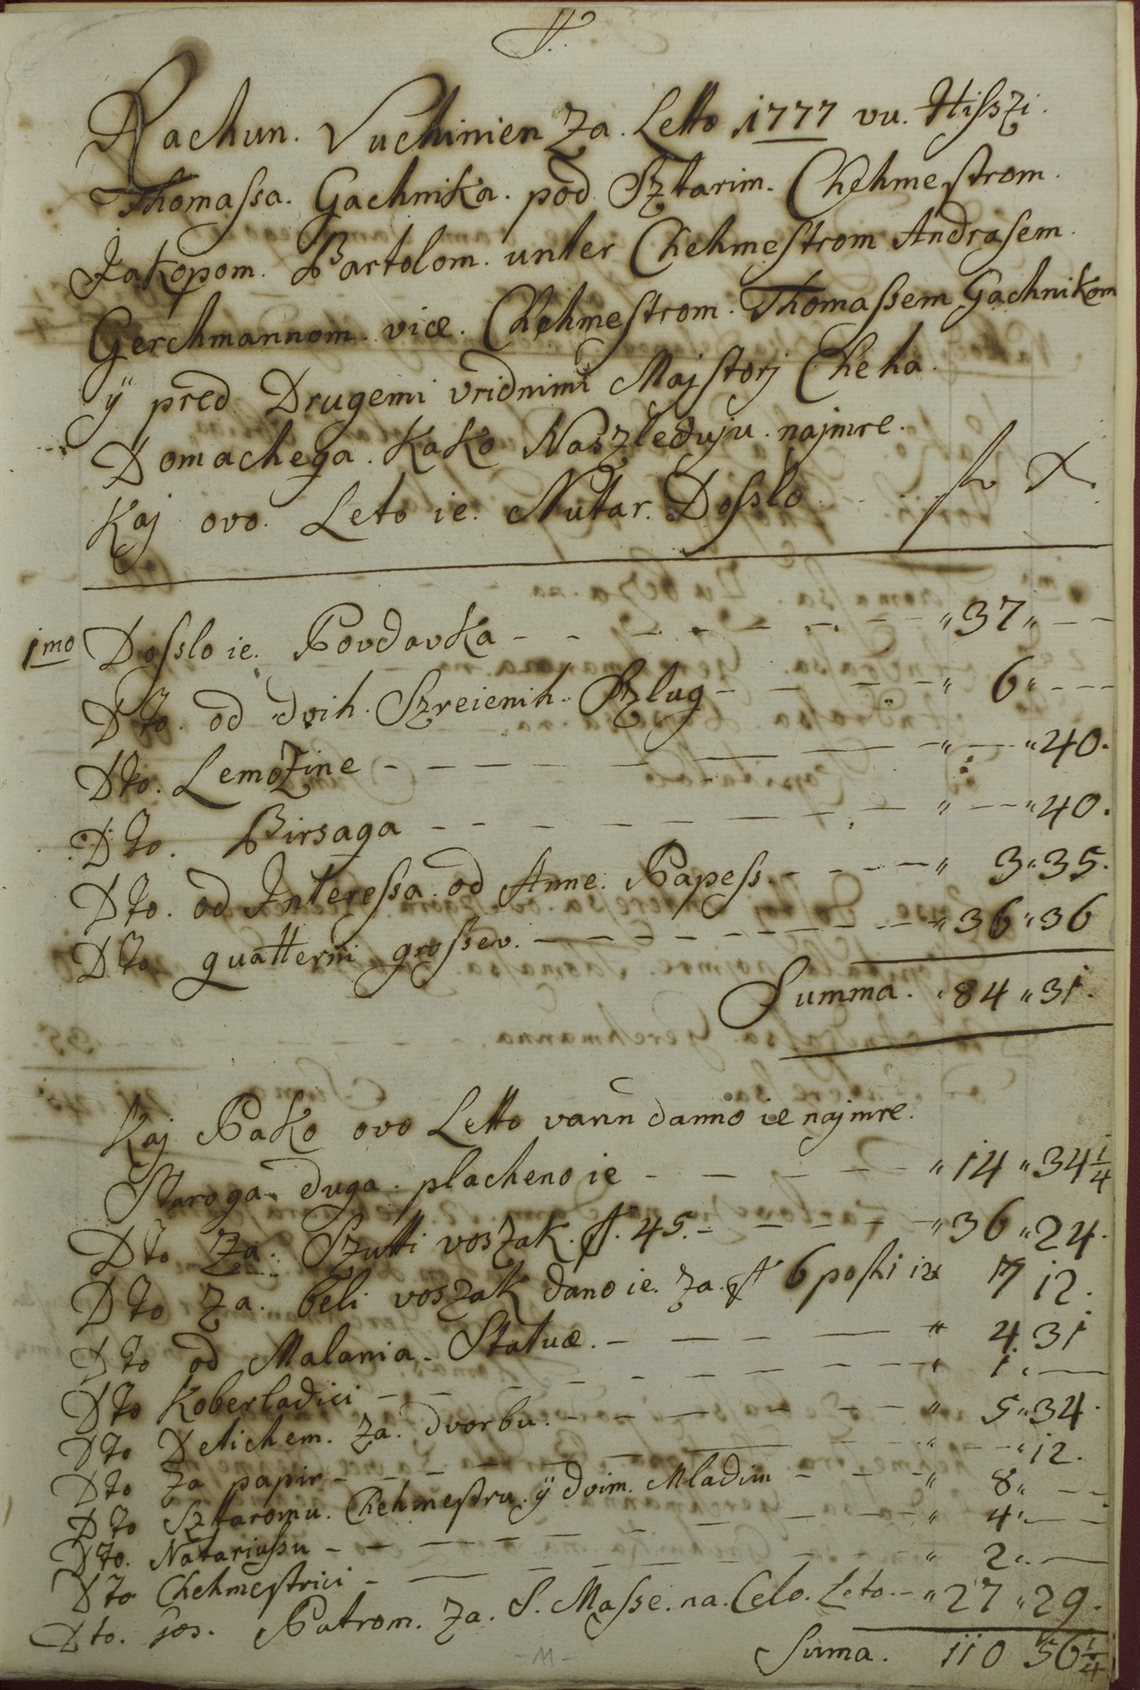 Rachun. Vuchinien Za. Letto 1777 vu. Hiſszi.
Thomaſsa. Gachnika. pod Sztarim. Chehmeſtrom.
Jakopom. Bartolom. unter Chehmeſtrom Andrasem.
Gerchmannom. vice. Chehmeſtrom. Thomaſsem Gachnikom
ÿ pred Drugemi vridnimi Majſtorj Cheha.
Domachega. Kako Naszleduju. najmre.
Kaj ovo. Leto ie. Nutar. Doſslo. fl X
1mo Doſslo ie. Povdavka - - - - - " 37 " - -
Dto. od dvih. Szreienih. Szlug - - - - " 6 " - - -
Dto. Lemozine - - - - - " - " 40.
Dto. Birsaga - - - - - " - " 40.
Dto. od Intereſsa. od Anne. Papeſs. - - - - " 3 " 35.
Dto. quatterni groſsev. - - - - - " 36 " 36
Summa. " 84 " 31.
Kaj Pako ovo Letto vann danno ie najmre.
Staroga duga. placheno ie - - - - " 14 " 34 1/4
Dto Za. Szutti voszak. ff. 45. - - - - " 36 " 24.
Dto Za. beli voszak dano ie. Za. ff 6 po fl 1 12 7 12.
Dto od Malania. Statuæ. - - - - " 4 31
Dto Koberladici - - - - - " 1 " -
Dto Detichem. Za. dvorbu. - - - - " 5 " 34.
Dto Za papir - - - - - " - " 12.
Dto Sztaromu. Chehmeſtru. ÿ dvim. Mladim - - - " 8 " - -
Dto. Natariuſsu - - - - - " 4 " - -
Dto Chehmeſtrici - - - - - " 2 " -
Dto. Gos. Patrom. Za. S. Maſse. na. Celo. Leto. - " 27 " 29.
Suma. 110 56 1/4